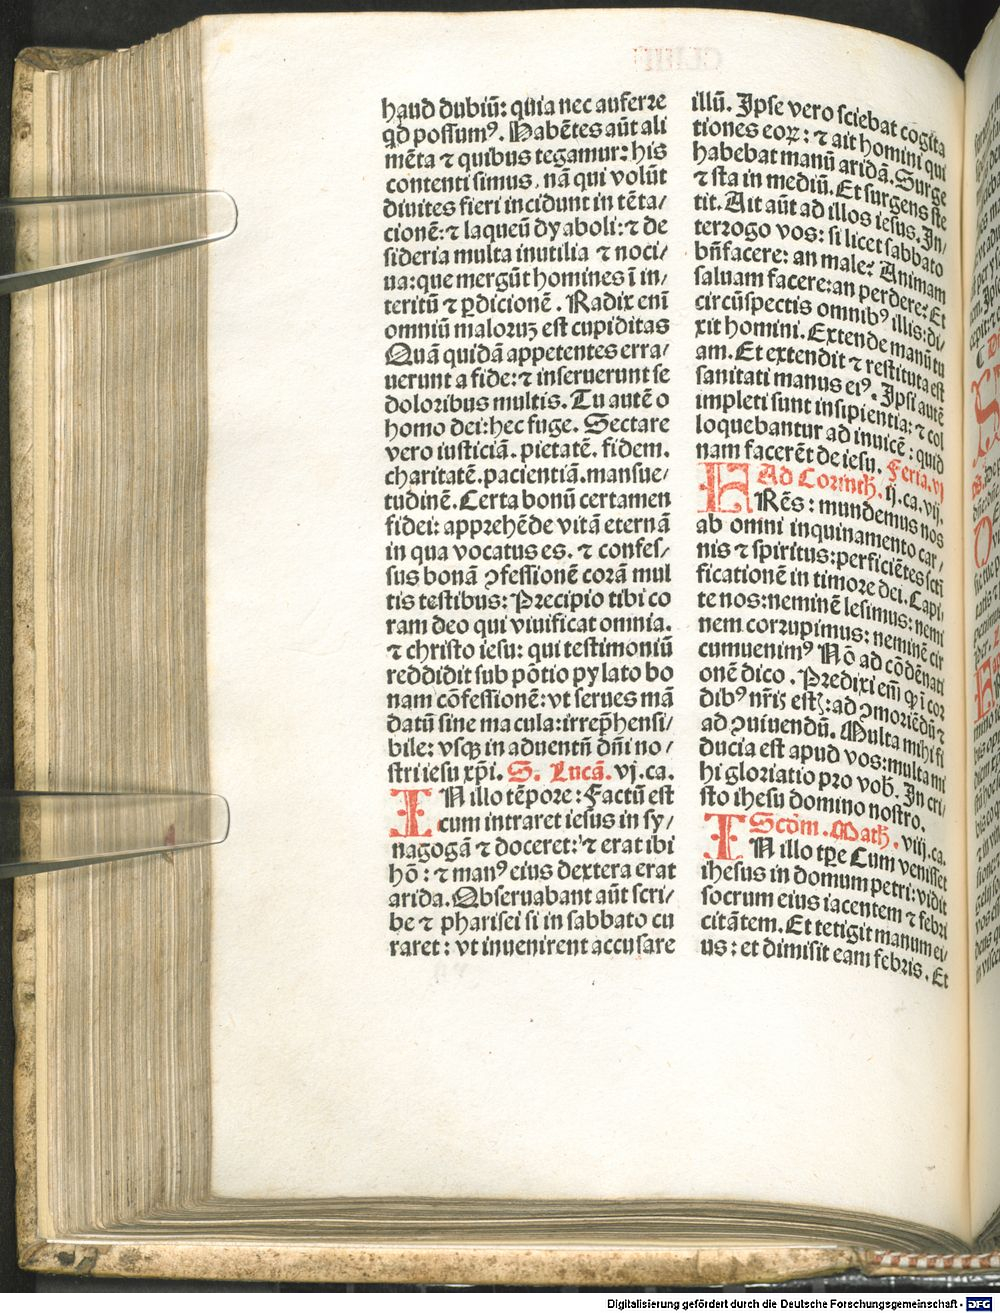 haud dubiū: quia nec auferre
qđ possumꝰ. Habētes aūt ali
mēta ⁊ quibus tegamur: his
contenti simus. nā qui volūt
diuites fieri incidunt in tēta⸗
cionē: ⁊ laqueū dyaboli: ⁊ de
sideria multa inutilia ⁊ noci⸗
ua: que mergūt homines ī in⸗
teritū ⁊ ꝑdicionē. Radix enī
omniū maloruꝫ est cupiditas
Quā quidā appetentes erra⸗
uerunt a fide: ⁊ inseruerunt se
doloribus multis. Tu autē o
homo dei: hec fuge. Sectare
vero iusticiā. pietatē. fidem.
charitatē. pacientiā. mansue⸗
tudinē. Certa bonū certamen
fidei: apprehēde vitā eternā
in qua vocatus es. ⁊ confes⸗
sus bonā ꝯfessionē corā mul
tis testibus: Precipio tibi co
ram deo qui viuificat omnia.
⁊ christo iesu: qui testimoniū
reddidit sub pōtio pylato bo
nam cōfessionē: vt serues mā
datū sine macula: irrep̄hensi⸗
bile: vsqꝫ in aduentū dn̄i no⸗
stri iesu xp̄i. S. Lucā. vj. ca.
IN illo tēpore: Factū est
cum intraret iesus in sy⸗
nagogā ⁊ doceret: ⁊ erat ibi
hō: ⁊ manꝰ eius dextera erat
arida. Obseruabant aūt scri⸗
be ⁊ pharisei si in sabbato cu
raret: vt inuenirent accusare
illū. Ipse vero sciebat cogita
tiones eoꝝ: ⁊ ait homini qui
habebat manū aridā. Surge
⁊ sta in mediū. Et surgens ste
tit. Ait aūt ad illos iesus. In⸗
terrogo vos: si licet sabbato
bn̄facere: an male? Animam
saluam facere: an perdere? Et
circūspectis omnibꝰ illis: di⸗
xit homini. Extende manū tu
am. Et extendit ⁊ restituta est
sanitati manus eiꝰ. Ipsi autē
impleti sunt insipientia: ⁊ col
loquebantur ad inuicē: quid
nam facerēt de iesu. Feria. vj
Ad Corinth. ij. ca. vij.
FRēs: mundemus nos
ab omni inquinamento car⸗
nis ⁊ spiritus: perficiētes scti
ficationē in timore dei. Capi⸗
te nos: neminē lesimus: nemi
nem corrupimus: neminē cir
cumuenimꝰ Nō ad cōdēnati
onē dico. Predixi em̄ qꝛ ī cor
dibꝰ nr̄is estꝭ: ad ꝯmoriēdū ⁊
ad ꝯuiuendū. Multa mihi fi
ducia est apud vos: multa mi
hi gloriatio pro vob. In cri⸗
sto ihesu domino nostro.
Scd̄m. Math. viij. ca.
IN illo tꝑe Cum venisset
ihesus in domum petri: vidit
socrum eius iacentem ⁊ febri
citātem. Et tetigit manum ei⸗
us: et dimisit eam febris. Et
Digitalisierung gefördert durch die Deutsche Forschungsgemeinschaft - DFG